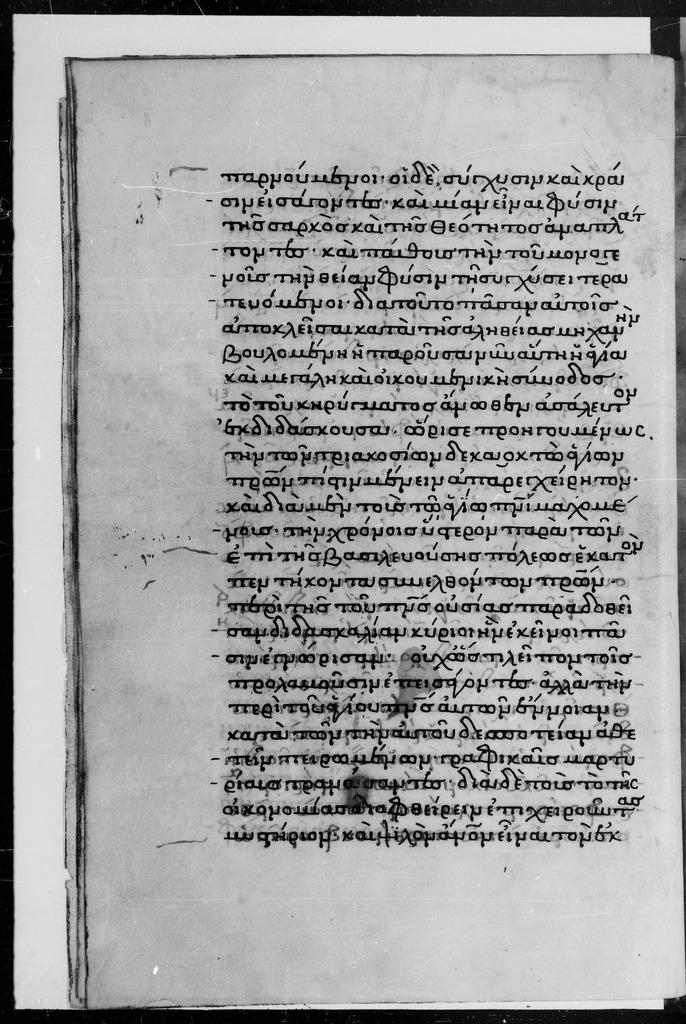 παρνούμενοι· οἱ δὲ, σύγχυσιν καὶ κρᾶ
σιν εἰσάγοντες· καὶ μίαν εἶναι φύσιν
τῆς σαρκὸς καὶ τῆς θεότητος ἀναπλάτ
τοντες· καὶ παθητὴν τοῦ μονογε
νοῦς τὴν θείαν φύσιν τῇ συγχύσει τερα
τευόμενοι· διὰ τοῦτο πᾶσαν αὐτοῖς
ἀποκλεῖσαι κατὰ τῆς ἀληθείας μηχανὴν
βουλομένη ἡ παροῦσα νυνὶ αὕτη ἡ ἁγία
καὶ μεγάλη καὶ οἰκουμενικὴ σύνοδος·
τὸ τοῦ κηρύγματος ἄνωθεν ἀσάλευτον
ἐκδιδάσκουσα· ὥρισε προηγουμένως
τὴν τῶν τριακοσίων δεκαοκτὼ ἁγίων
πρῶν πίστιν μένειν ἀπαρεγχείρητον·
καὶ διὰ μὲν τοὺς τῶ ἁγίω πνι μαχομέ
νους· τὴν χρόνοις ὕστερον παρὰ τῶν
ἐπὶ τῆς βασιλευούσης πόλεως ἑκατὸν
πεντήκοντα συνελθόντων πρῶν·
περὶ τῆς τοῦ πνς οὐσίας παραδοθεῖ
σαν διδασκαλίαν κυροῖ ἣν ἐκεῖνοι πᾶ
σιν ἐγνώρισαν· οὐχ ὥς τι λεῖπον τοῖς
προλαβοῦσιν ἐπεισάγοντες· ἀλλὰ τὴν
περὶ τοῦ ἁγίου πνς αὐτῶν ἔννοιαν
κατὰ τῶν τὴν αὐτοῦ δεσποτείαν ἀθε
τεῖν πειρωμένων γραφικαῖς μαρτυ
ρίαις τρανώσαντες· διὰ δὲ τοὺς τὸ τῆς
οἰκονομίας διαφθείρειν ἐπιχειροῦντας
μυστήριον· καὶ ψιλὸν ἄνον εἶναι τὸν ἐκ